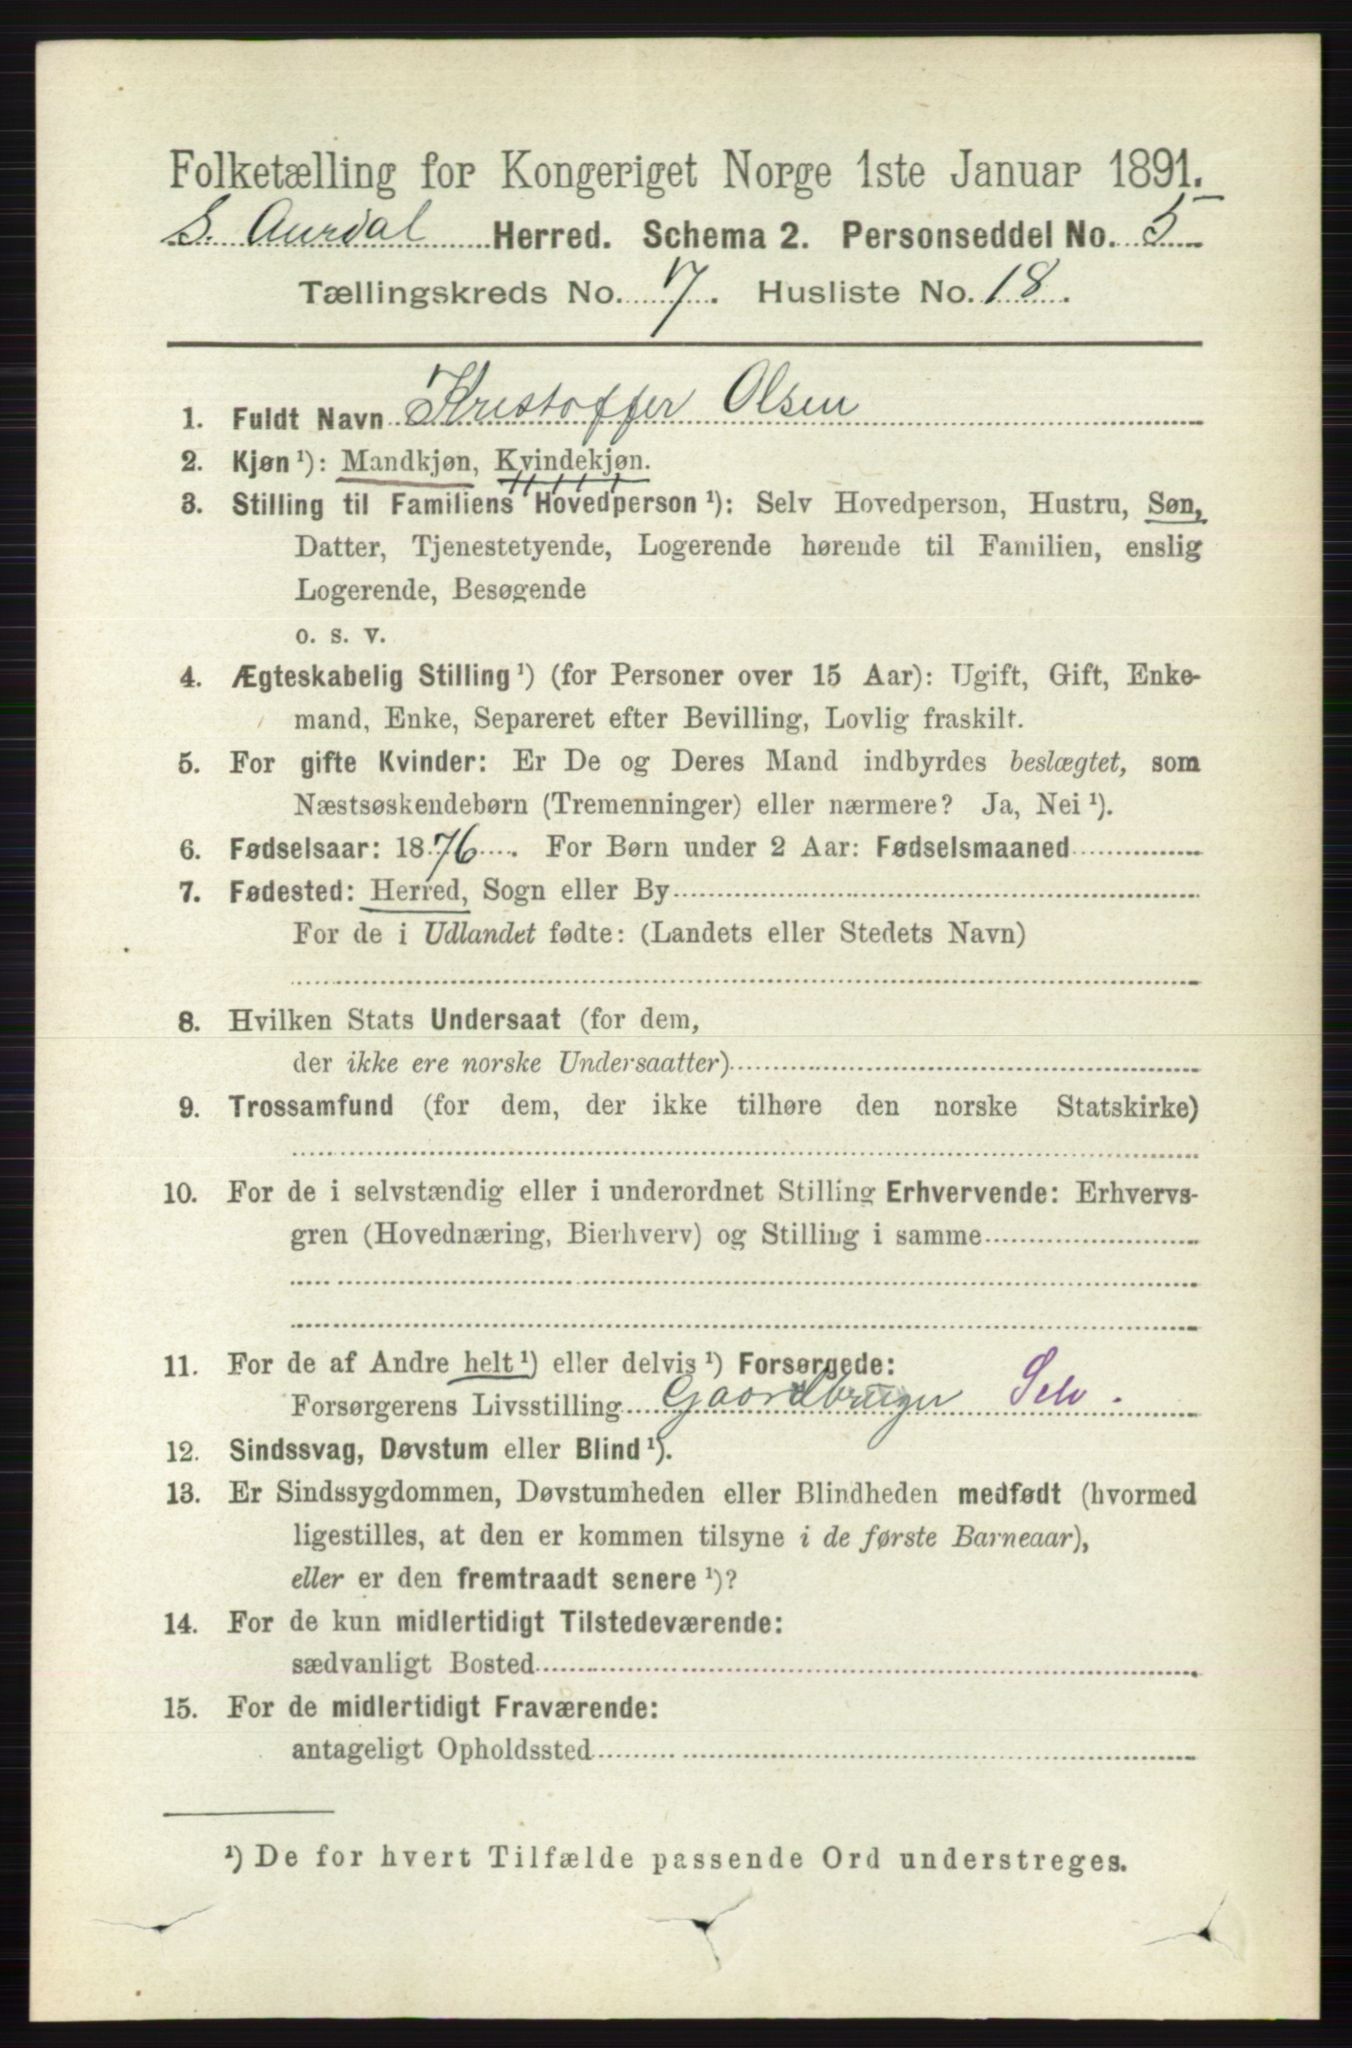 Folketælling for Kongeriget Norge 1ste Januar 1891.
S. Aurdal Herred. Schema 2. Personseddel No. 5
Tællingskreds No. 7. Husliste No. 18.
1. Fuldt Navn Kristoffer Olsen
2. Kjøn¹): Mandkjøn, Kvindekjøn.
3. Stilling til Familiens Hovedperson¹): Selv Hovedperson, Hustru, Søn,
Datter, Tjenestetyende, Logerende hørende til Familien, enslig
Logerende, Besøgende
o. s. v.
4. Ægteskabelig Stilling¹) (for Personer over 15 Aar): Ugift, Gift, Enke-
mand, Enke, Separeret efter Bevilling, Lovlig fraskilt.
5. For gifte Kvinder: Er De og Deres Mand indbyrdes beslægtet, som
Næstsøskendebørn (Tremenninger) eller nærmere? Ja, Nei¹).
6. Fødselsaar: 1876. For Børn under 2 Aar: Fødselsmaaned
7. Fødested: Herred, Sogn eller By
For de i Udlandet fødte: (Landets eller Stedets Navn)
8. Hvilken Stats Undersaat (for dem,
der ikke ere norske Undersaatter)
9. Trossamfund (for dem, der ikke tilhøre den norske Statskirke)
10. For de i selvstændig eller i underordnet Stilling Erhvervende: Erhvervs-
gren (Hovednæring, Bierhverv) og Stilling i samme
11. For de af Andre helt¹) eller delvis¹) Forsørgede:
Forsørgerens Livsstilling Gaardbruger Selv.
12. Sindssvag, Døvstum eller Blind¹).
13. Er Sindssygdommen, Døvstumheden eller Blindheden medfødt (hvormed
ligestilles, at den er kommen tilsyne i de første Barneaar),
eller er den fremtraadt senere¹)?
14. For de kun midlertidigt Tilstedeværende:
sædvanligt Bosted
15. For de midlertidigt Fraværende:
antageligt Opholdssted
¹) De for hvert Tilfælde passende Ord understreges.